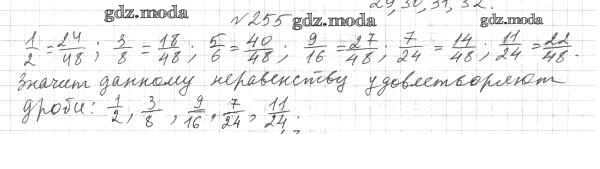 29, 30, 31, 32.
gdz.moda
№255 gdz.moda gdz.moda
1/2 = 24/48; 3/8 = 18/48; 5/6 = 40/48; 9/16 = 27/48; 7/24 = 14/48; 11/24 = 22/48.
Значит данному неравенству удовлетворяют
дроби: 1/2, 3/8, 9/16, 7/24, 11/24.